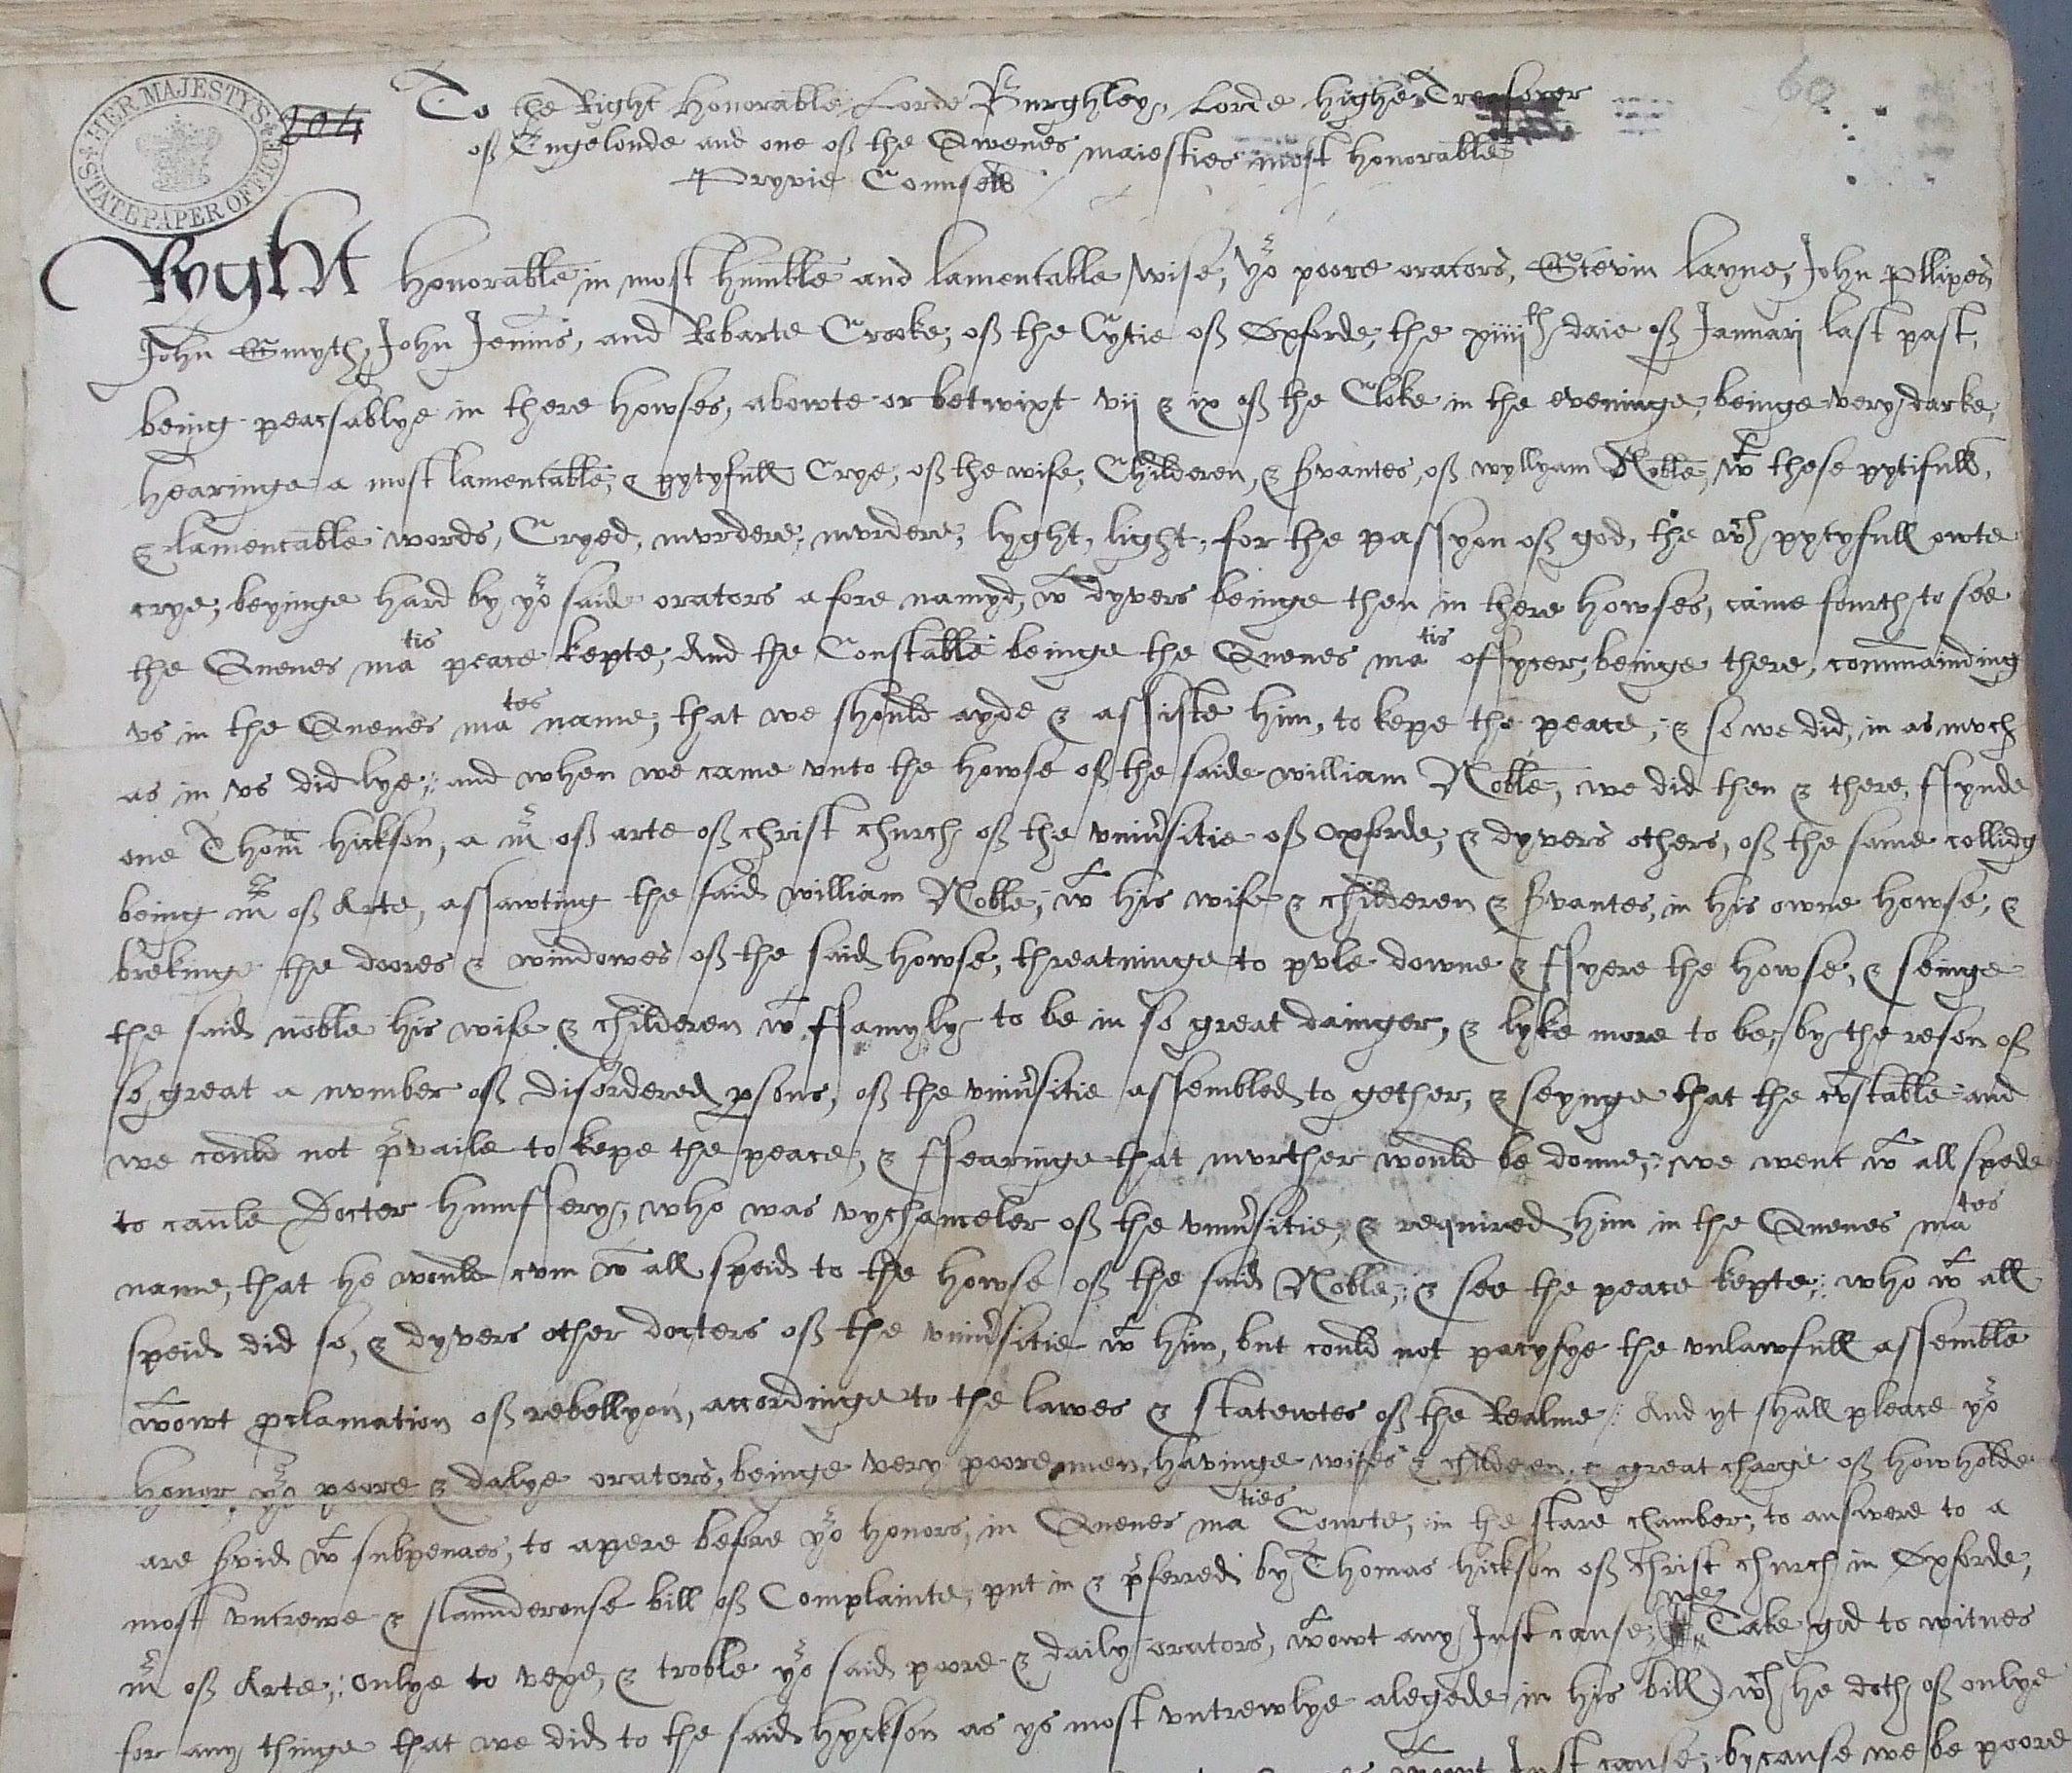 HER MAJESTY'S STATE PAPER OFFICE
204
60
To the Right Honorable Lorde Burghley, Lorde highe Treasorer
off Engelonde and one off the Qwenes maiesties most honorable
Pryvie Counsell
Ryght Honorable in most humble and lamentable wise, yor poore orators, Stevin layne, John pllipes
John Smyth, John Jennins, and Robarte Crooke, off the Cytie off Oxforde, the xiiijth daie off Januarij last past,
being peacsablye in there howses, abowte or betwixt vij & ix off the Cloke in the eveninge, beinge very darke,
Hearinge a most lamentable, & pytyfull Crye, off the wife, Childeren, & svantes, off wyllyam Noble, wt these pytifull,
& lamentable words, Cryed, mvrdere, mvrdere, lyght, light, for the passyon off god, the wch pytyfull owte
crye, beyinge hard by yor said orators afore namyd, wt dyvers beinge then in there howses, came fourth to see
the Quenes matis peace kepte, And the Constable beinge the Quenes matis offycer, beinge there, commainding
vs in the Quenes mates name, that we should ayde & assiste him, to kepe the peace, & so we did, in as mvch
as in vs did lye, and when we came vnto the howse off the saide william Noble, we did then & there, ffynde
one Thom hickson, a mr off arte off christ church off the vniusitie off oxforde, & dyvers others, off the same collidg
being mrs off Arte, assawting the said william Noble, wt his wife & childeren & svantes, in his owne howse, &
brekinge the doores & windowes off the said howse, threatninge to pvle downe & ffyere the howse, & seinge
the said noble his wife & childeren wt ffamyly to be in so great dainger, & lyke more to be, by the reson off
so great a nvmber off disordered psons, off the vniusitie assembled to gether, & seynge that the cvstable and
we could not pvaile to kepe the peace, & ffearinge that mvrther would be donne, we went wt all spede
to caule Docter humffery, who was vychanceler off the vniusitie, & required him in the Quenes mates
name, that he would cvm wt all speid to the howse off the said Noble, & see the peace kepte, who wt all
speid did so, & dyvers other docters off the vniusitie wt him, but could not pacyfye the vnlawfull assemble
wtowt pclamation off rebellyon, accordinge to the lawes & statewtes off the Realme, And yt shall pleace yor
honor, yor poore & dalye orators, beinge very poore men, havinge wifes & childeren, & great charge off howholde
are svid wt subpenaes, to apere before yor honors, in Quenes maties Courte, in the stare chamber, to answere to a
most vntrewe & slaunderouse bill off Complainte, put in & pferred by Thomas hickson off christ church in Oxforde,
mr off Arte, onlye to vexe, & troble yor said poore & daily orators, wtowt any Just cause, (we Take god to witnes
for any thinge that we did to the said hyckson as ys most vntrewlye alegede in his bill) wch he doth off onlye
wtowt Just cause, bycause we be poore